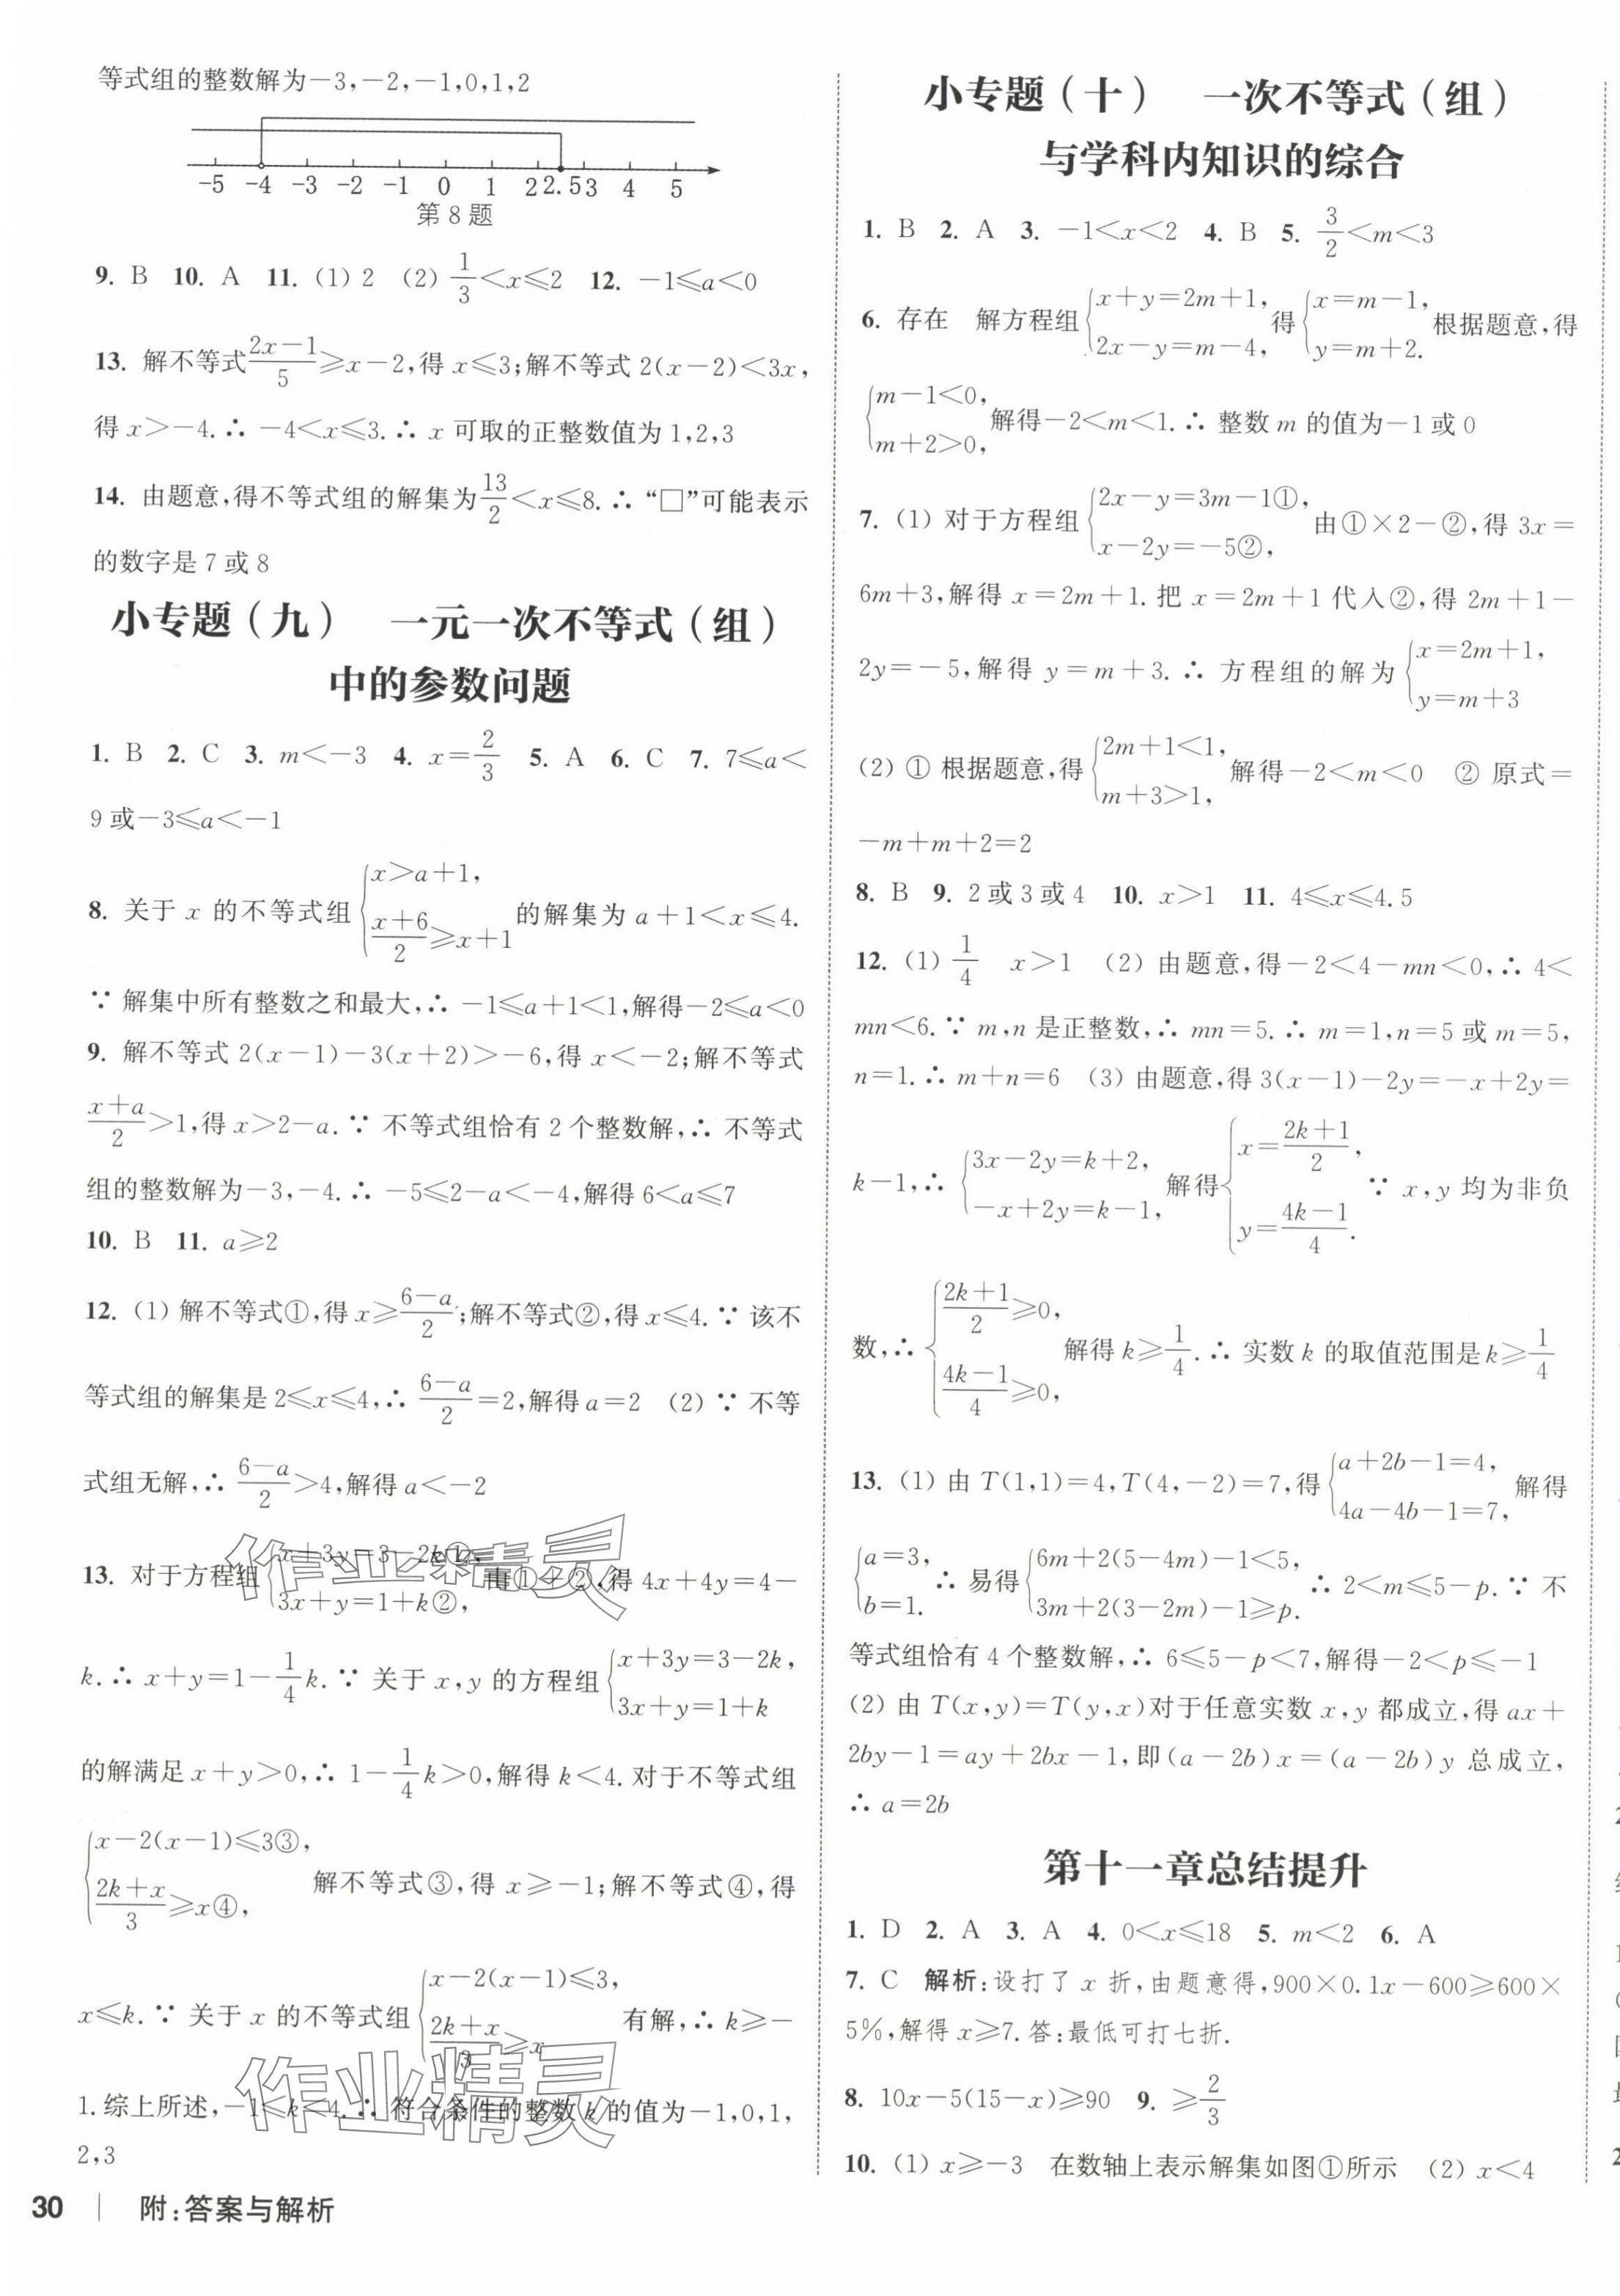 等式组的整数解为－3，－2，－1，0，1，2
-5 -4 -3 -2 -1 0 1 2 2.5 3 4 5
第8题
9. B 10. A 11. (1) 2 (2) 1/3＜x≤2 12. －1≤a＜0
13. 解不等式(2x－1)/5≥x－2，得 x≤3；解不等式 2(x－2)＜3x，
得 x＞－4. ∴ －4＜x≤3. ∴ x 可取的正整数值为 1，2，3
14. 由题意，得不等式组的解集为13/2＜x≤8. ∴ “□”可能表示
的数字是 7 或 8
小专题（九） 一元一次不等式（组）
中的参数问题
1. B 2. C 3. m＜－3 4. x＝2/3 5. A 6. C 7. 7≤a＜
9 或－3≤a＜－1
8. 关于 x 的不等式组{x＞a＋1，(x＋6)/2≥x＋1 的解集为 a＋1＜x≤4.
∵ 解集中所有整数之和最大，∴ －1≤a＋1＜1，解得－2≤a＜0
9. 解不等式 2(x－1)－3(x＋2)＞－6，得 x＜－2；解不等式
(x＋a)/2＞1，得 x＞2－a. ∵ 不等式组恰有 2 个整数解，∴ 不等式
组的整数解为－3，－4. ∴ －5≤2－a＜－4，解得 6＜a≤7
10. B 11. a≥2
12. (1) 解不等式①，得 x≥(6－a)/2；解不等式②，得 x≤4. ∵ 该不
等式组的解集是 2≤x≤4，∴ (6－a)/2＝2，解得 a＝2 (2) ∵ 不等
式组无解，∴ (6－a)/2＞4，解得 a＜－2
13. 对于方程组{x＋3y＝3－2k①，3x＋y＝1＋k②，由①＋②，得 4x＋4y＝4－
k. ∴ x＋y＝1－1/4k. ∵ 关于 x，y 的方程组{x＋3y＝3－2k，3x＋y＝1＋k
的解满足 x＋y＞0，∴ 1－1/4k＞0，解得 k＜4. 对于不等式组
{x－2(x－1)≤3③，(2k＋x)/3≥x④，解不等式③，得 x≥－1；解不等式④，得
x≤k. ∵ 关于 x 的不等式组{x－2(x－1)≤3，(2k＋x)/3≥x 有解，∴ k≥－
1. 综上所述，－1≤k＜4. ∴ 符合条件的整数 k 的值为－1，0，1，
2，3
作业精灵
作业精灵
30 | 附：答案与解析
小专题（十） 一次不等式（组）
与学科内知识的综合
1. B 2. A 3. －1＜x＜2 4. B 5. 3/2＜m＜3
6. 存在 解方程组{x＋y＝2m＋1，2x－y＝m－4，得{x＝m－1，y＝m＋2. 根据题意，得
{m－1＜0，m＋2＞0，解得－2＜m＜1. ∴ 整数 m 的值为－1 或 0
7. (1) 对于方程组{2x－y＝3m－1①，x－2y＝－5②，由①×2－②，得 3x＝
6m＋3，解得 x＝2m＋1. 把 x＝2m＋1 代入②，得 2m＋1－
2y＝－5，解得 y＝m＋3. ∴ 方程组的解为{x＝2m＋1，y＝m＋3
(2) ① 根据题意，得{2m＋1＜1，m＋3＞1，解得－2＜m＜0 ② 原式＝
－m＋m＋2＝2
8. B 9. 2 或 3 或 4 10. x＞1 11. 4≤x≤4.5
12. (1) 1/4 x＞1 (2) 由题意，得－2＜4－mn＜0，∴ 4＜
mn＜6. ∵ m，n 是正整数，∴ mn＝5. ∴ m＝1，n＝5 或 m＝5，
n＝1. ∴ m＋n＝6 (3) 由题意，得 3(x－1)－2y＝－x＋2y＝
k－1，∴ {3x－2y＝k＋2，－x＋2y＝k－1，解得{x＝(2k＋1)/2，y＝(4k－1)/4. ∵ x，y 均为非负
数，∴ {(2k＋1)/2≥0，(4k－1)/4≥0，解得 k≥1/4. ∴ 实数 k 的取值范围是 k≥1/4
13. (1) 由 T(1，1)＝4，T(4，－2)＝7，得{a＋2b－1＝4，4a－4b－1＝7，解得
{a＝3，b＝1. ∴ 易得{6m＋2(5－4m)－1＜5，3m＋2(3－2m)－1≥p. ∴ 2＜m≤5－p. ∵ 不
等式组恰有 4 个整数解，∴ 6≤5－p＜7，解得－2＜p≤－1
(2) 由 T(x，y)＝T(y，x)对于任意实数 x，y 都成立，得 ax＋
2by－1＝ay＋2bx－1，即(a－2b)x＝(a－2b)y 总成立，
∴ a＝2b
第十一章总结提升
1. D 2. A 3. A 4. 0＜x≤18 5. m＜2 6. A
7. C 解析：设打了 x 折，由题意得，900×0.1x－600≥600×
5%，解得 x≥7. 答：最低可打七折.
8. 10x－5(15－x)≥90 9. ≥2/3
10. (1) x≥－3 在数轴上表示解集如图①所示 (2) x＜4